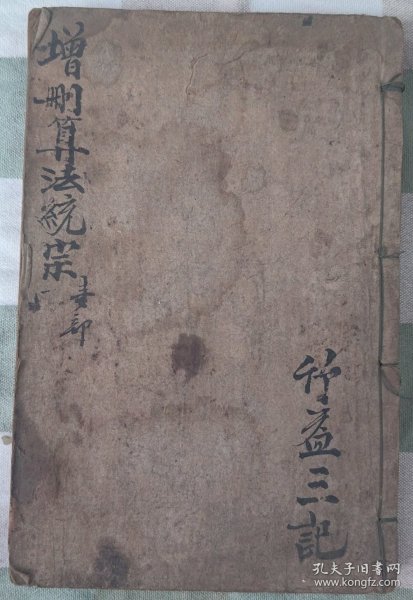 增刪算法統宗
部
益三記
孔夫子旧书网
www.kongfz.com